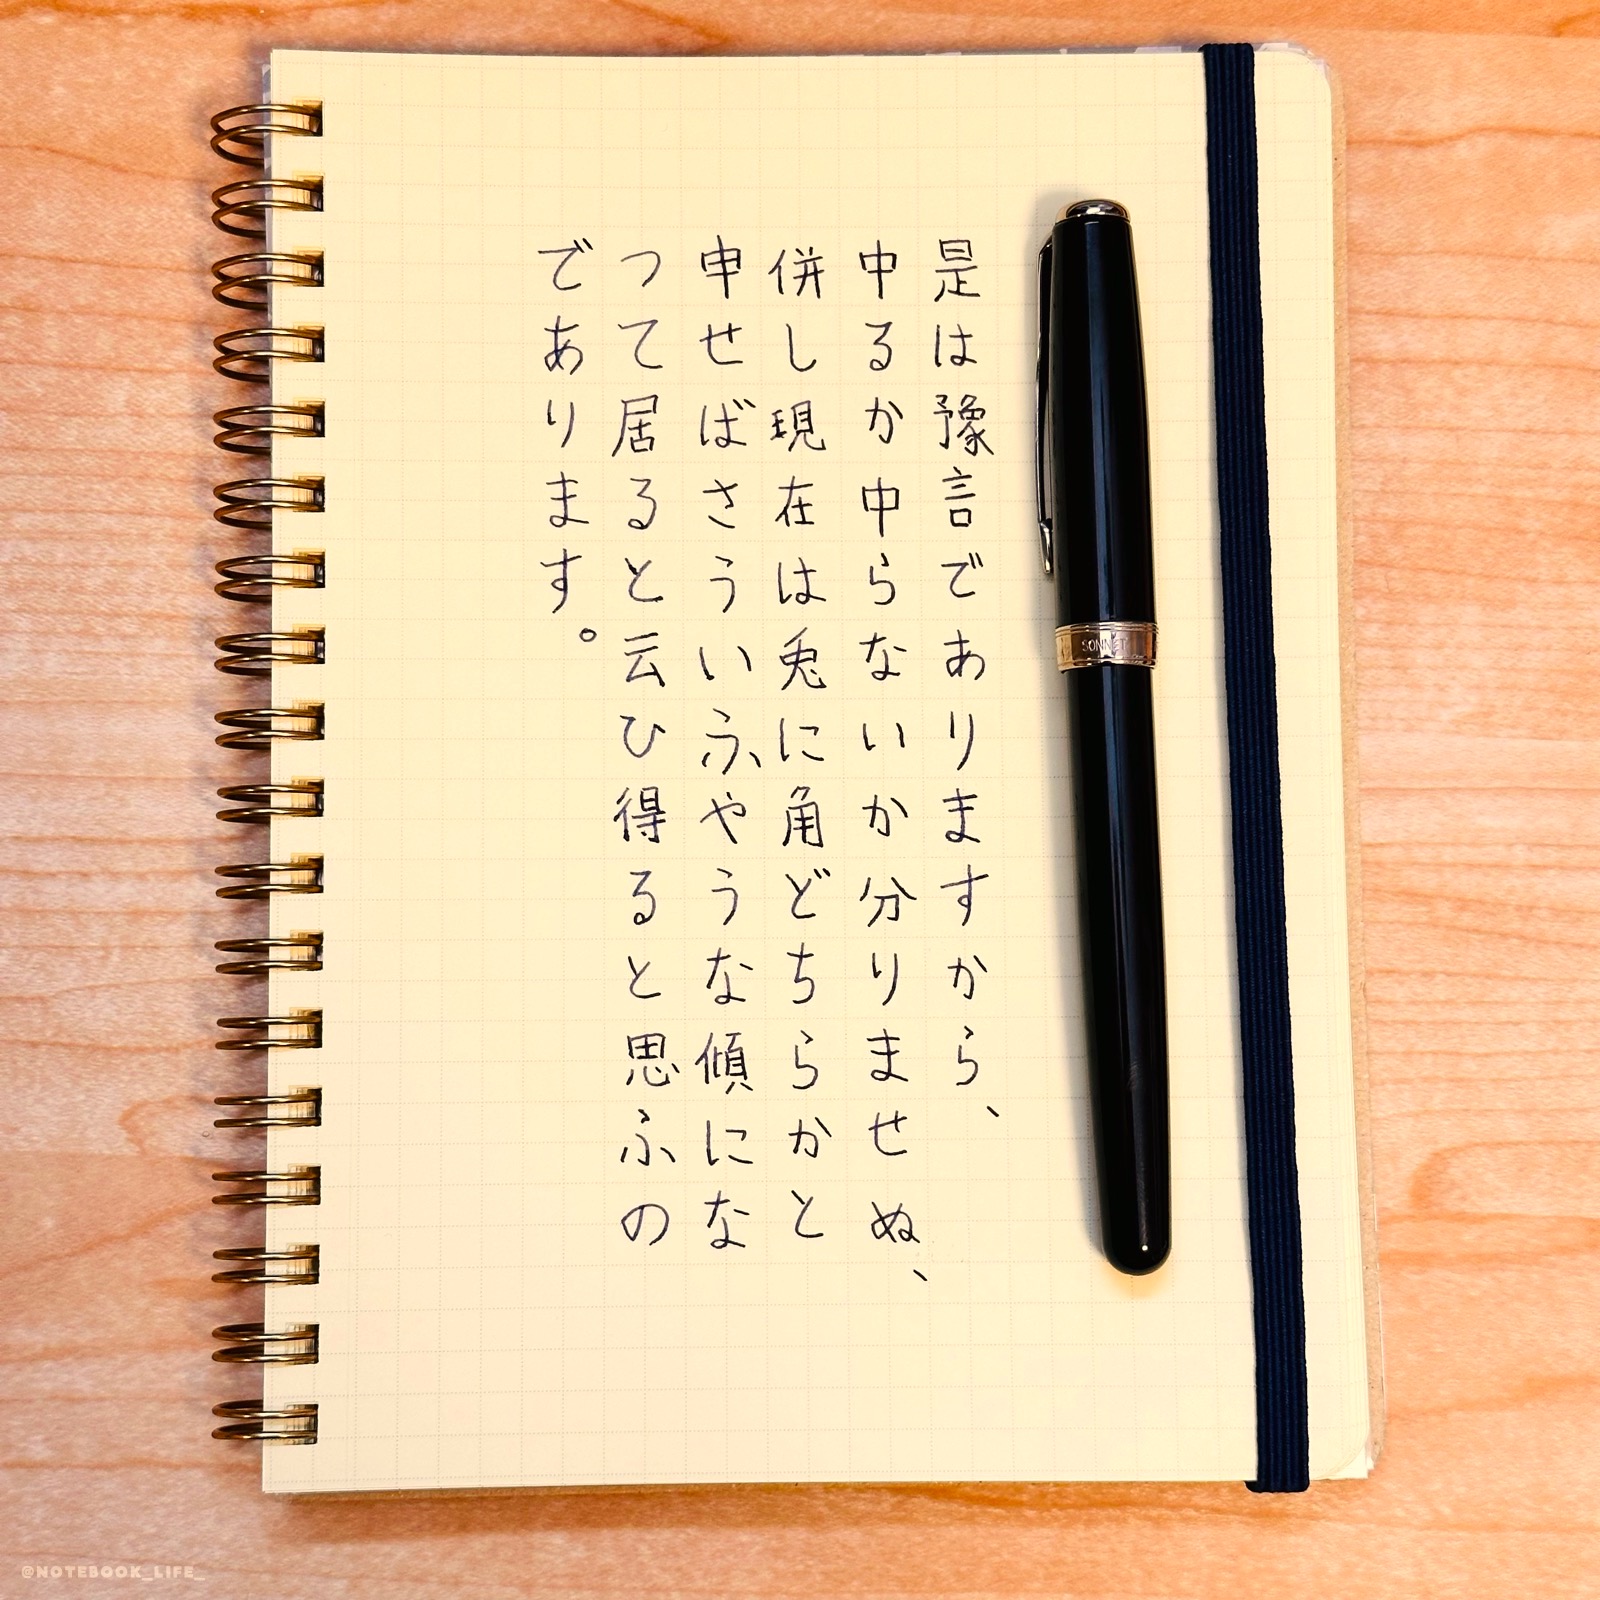 是は豫言でありますから、
中るか中らないか分りませぬ、
併し現在は兎に角どちらかと
申せばさういふやうな傾にな
つて居ると云ひ得ると思ふの
であります。
SONNET
@NOTEBOOK_LIFE_